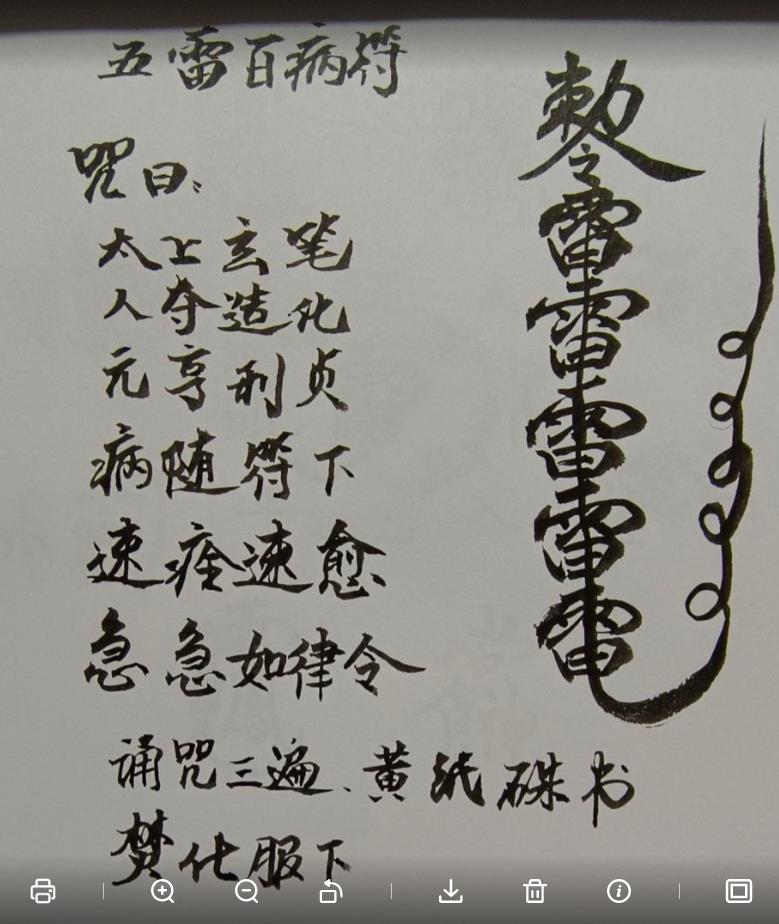 五雷百病符
咒曰:
太上玄笔
人夺造化
元亨利贞
病随符下
速痊速愈
急急如律令
诵咒三遍、黄纸硃书
焚化服下
敕令
雷
雷
雷
雷
雷